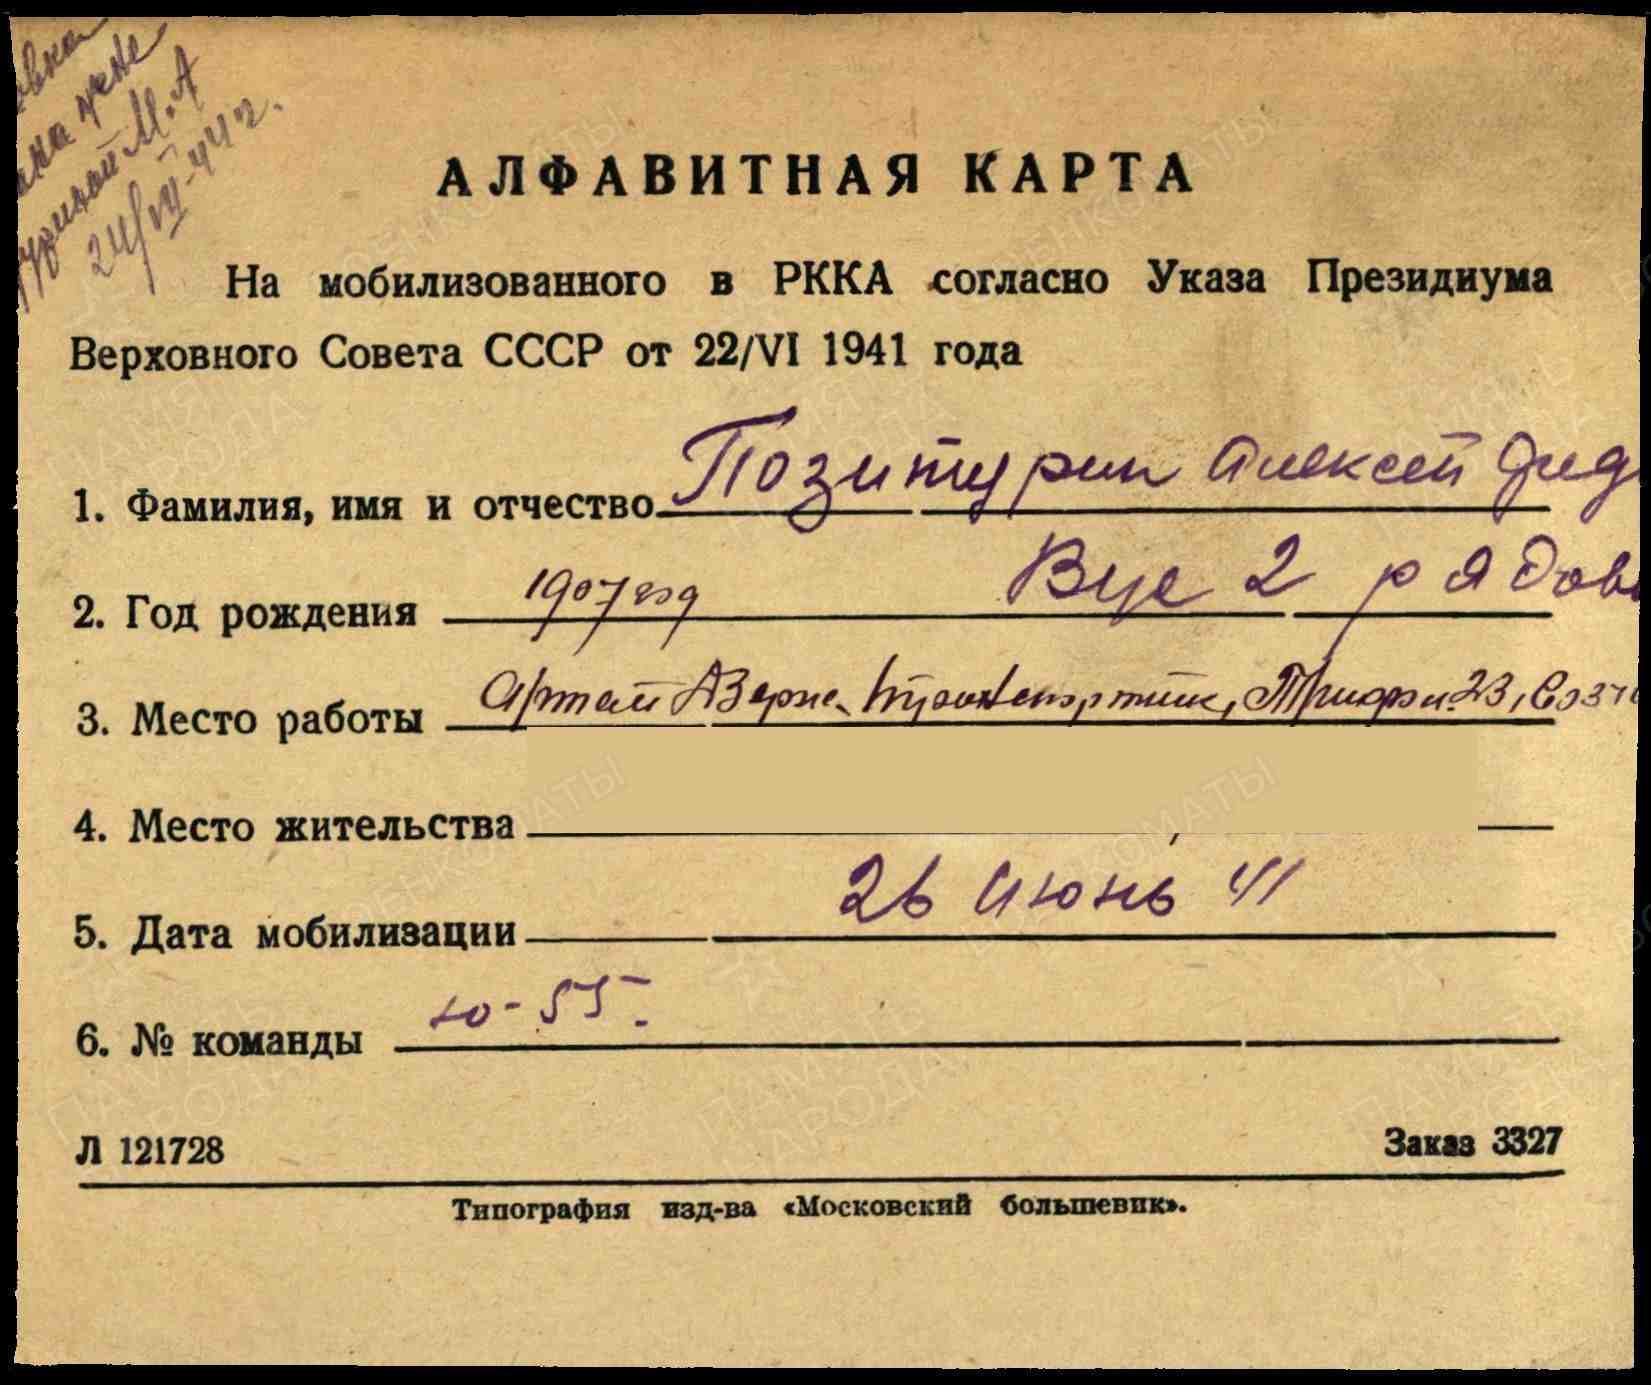 жене
М. А
24/VII-44 г.
АЛФАВИТНАЯ КАРТА
На мобилизованного в РККА согласно Указа Президиума
Верховного Совета СССР от 22/VI 1941 года
1. Фамилия, имя и отчество Позитурин Алексей Фед
2. Год рождения 1907 год Вус 2 рядов
3. Место работы Артель
4. Место жительства
5. Дата мобилизации 26 июнь 41
6. № команды 10-55.
Л 121728 Заказ 3327
Типография изд-ва «Московский большевик».